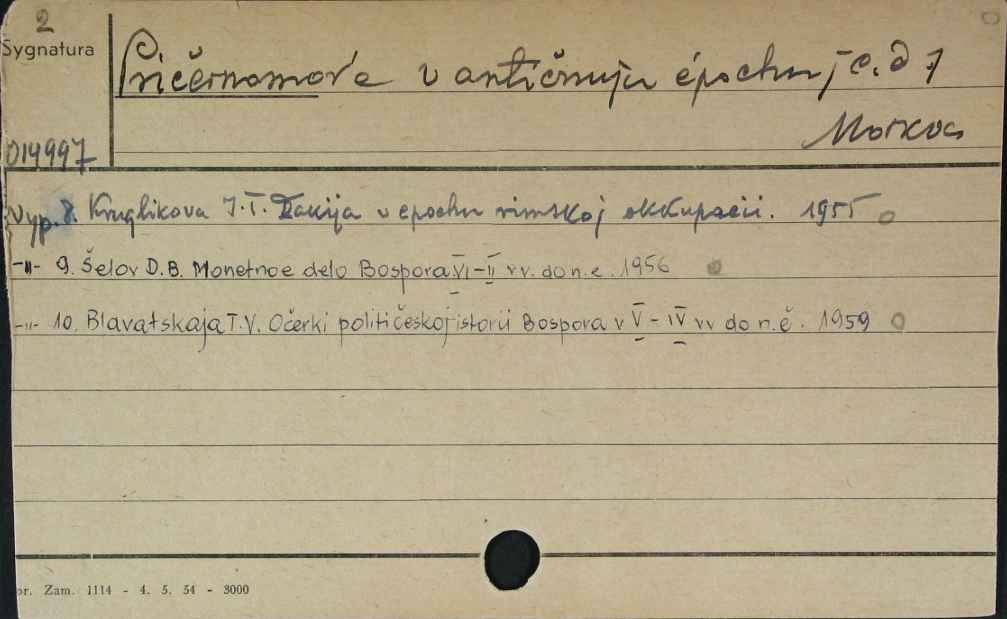 2
Sygnatura
Pričernomor'e v antičnuju épochu [c.d.]
Moskva
014997
Vyp. 8. Kruglikova I.T. Dakija v epochu rimskoj okkupacii. 1955
-"- 9. Šelov D.B. Monetnoe delo Bospora VI-II vv. do n.e. 1956
-"- 10. Blavatskaja T.V. Očerki političeskoj istorii Bospora v V-IV vv do n.ě. 1959
or. Zam. 1114 - 4. 5. 54 - 3000